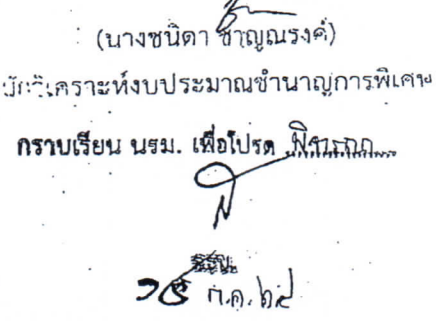 (นางชนิดา ชาญณรงค์)
นักวิเคราะห์งบประมาณชำนาญการพิเศษ
กราบเรียน นรม. เพื่อโปรด พิจารณา
ก.ค.